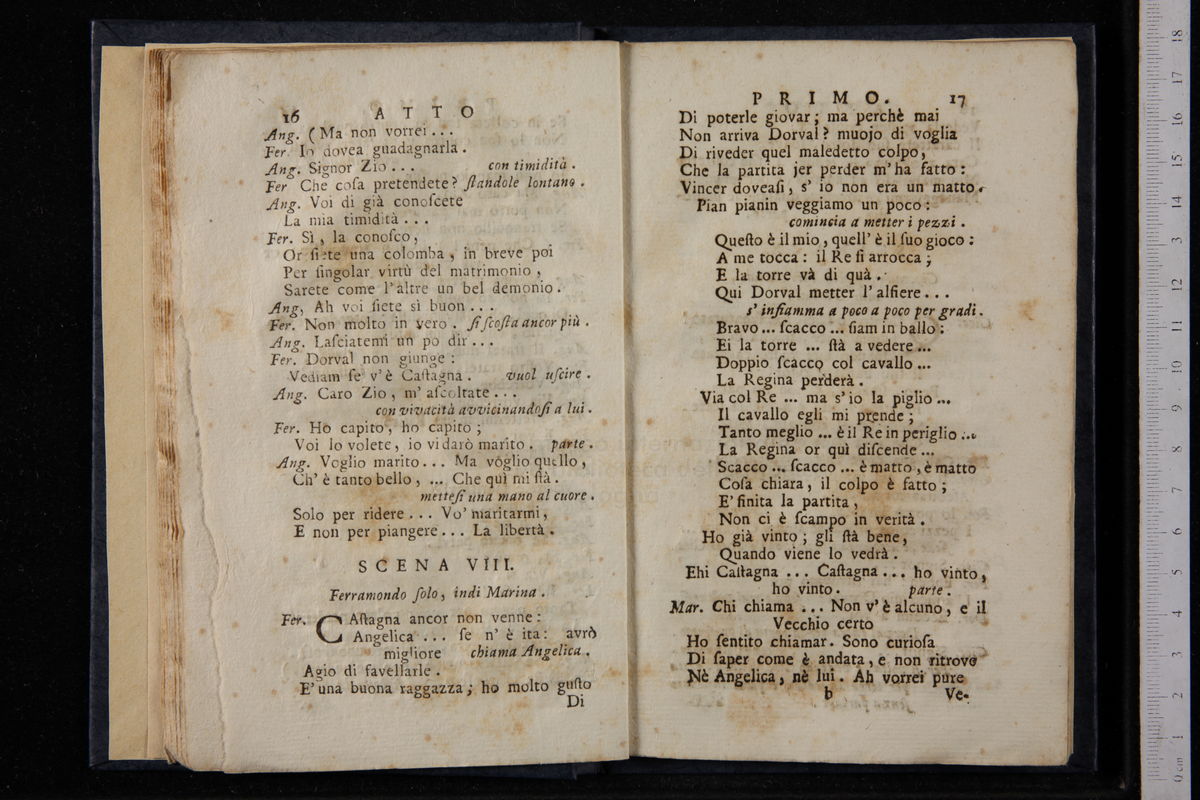 16 ATTO
Ang. (Ma non vorrei...
Fer. Io dovea guadagnarla.
Ang. Signor Zio... con timidità.
Fer Che coſa pretendete? ſtandole lontano.
Ang. Voi di già conoſcete
La mia timidità...
Fer. Sì, la conoſco,
Or ſiete una colomba, in breve poi
Per ſingolar virtù del matrimonio,
Sarete come l'altre un bel demonio.
Ang, Ah voi ſiete sì buon...
Fer. Non molto in vero. ſi ſcoſta ancor più.
Ang. Laſciatemi un po dir...
Fer. Dorval non giunge:
Vediam ſe v'è Caſtagna. vuol uſcire.
Ang. Caro Zio, m'aſcoltate...
con vivacità avvicinandoſi a lui.
Fer. Ho capito, ho capito;
Voi lo volete, io vi darò marito. parte.
Ang. Voglio marito... Ma voglio quello,
Ch'è tanto bello, ... Che quì mi ſtà.
metteſi una mano al cuore.
Solo per ridere... Vo' maritarmi,
E non per piangere... La libertà.
SCENA VIII.
Ferramondo ſolo, indi Marina.
Fer. CAſtagna ancor non venne:
Angelica... ſe n'è ita: avrò
migliore chiama Angelica.
Agio di favellarle.
E' una buona raggazza; ho molto guſto
Di
PRIMO. 17
Di poterle giovar; ma perchè mai
Non arriva Dorval? muojo di voglia
Di riveder quel maledetto colpo,
Che la partita jer perder m'ha fatto:
Vincer doveaſi, s'io non era un matto.
Pian pianin veggiamo un poco:
comincia a metter i pezzi.
Queſto è il mio, quell'è il ſuo gioco:
A me tocca: il Re ſi arrocca;
E la torre và di quà.
Qui Dorval metter l'alfiere...
s'inſiamma a poco a poco per gradi.
Bravo... ſcacco... ſiam in ballo:
Ei la torre ... ſtà a vedere...
Doppio ſcacco col cavallo...
La Regina perderà.
Via col Re ... ma s'io la piglio...
Il cavallo egli mi prende;
Tanto meglio ... è il Re in periglio...
La Regina or quì diſcende...
Scacco... ſcacco... è matto, è matto
Coſa chiara, il colpo è fatto;
E' finita la partita,
Non ci è ſcampo in verità.
Ho già vinto; gli ſtà bene,
Quando viene lo vedrà.
Ehi Caſtagna ... Caſtagna... ho vinto,
ho vinto. parte.
Mar. Chi chiama ... Non v'è alcuno, e il
Vecchio certo
Ho ſentito chiamar. Sono curioſa
Di ſaper come è andata, e non ritrovo
Nè Angelica, nè lui. Ah vorrei pure
b Ve-